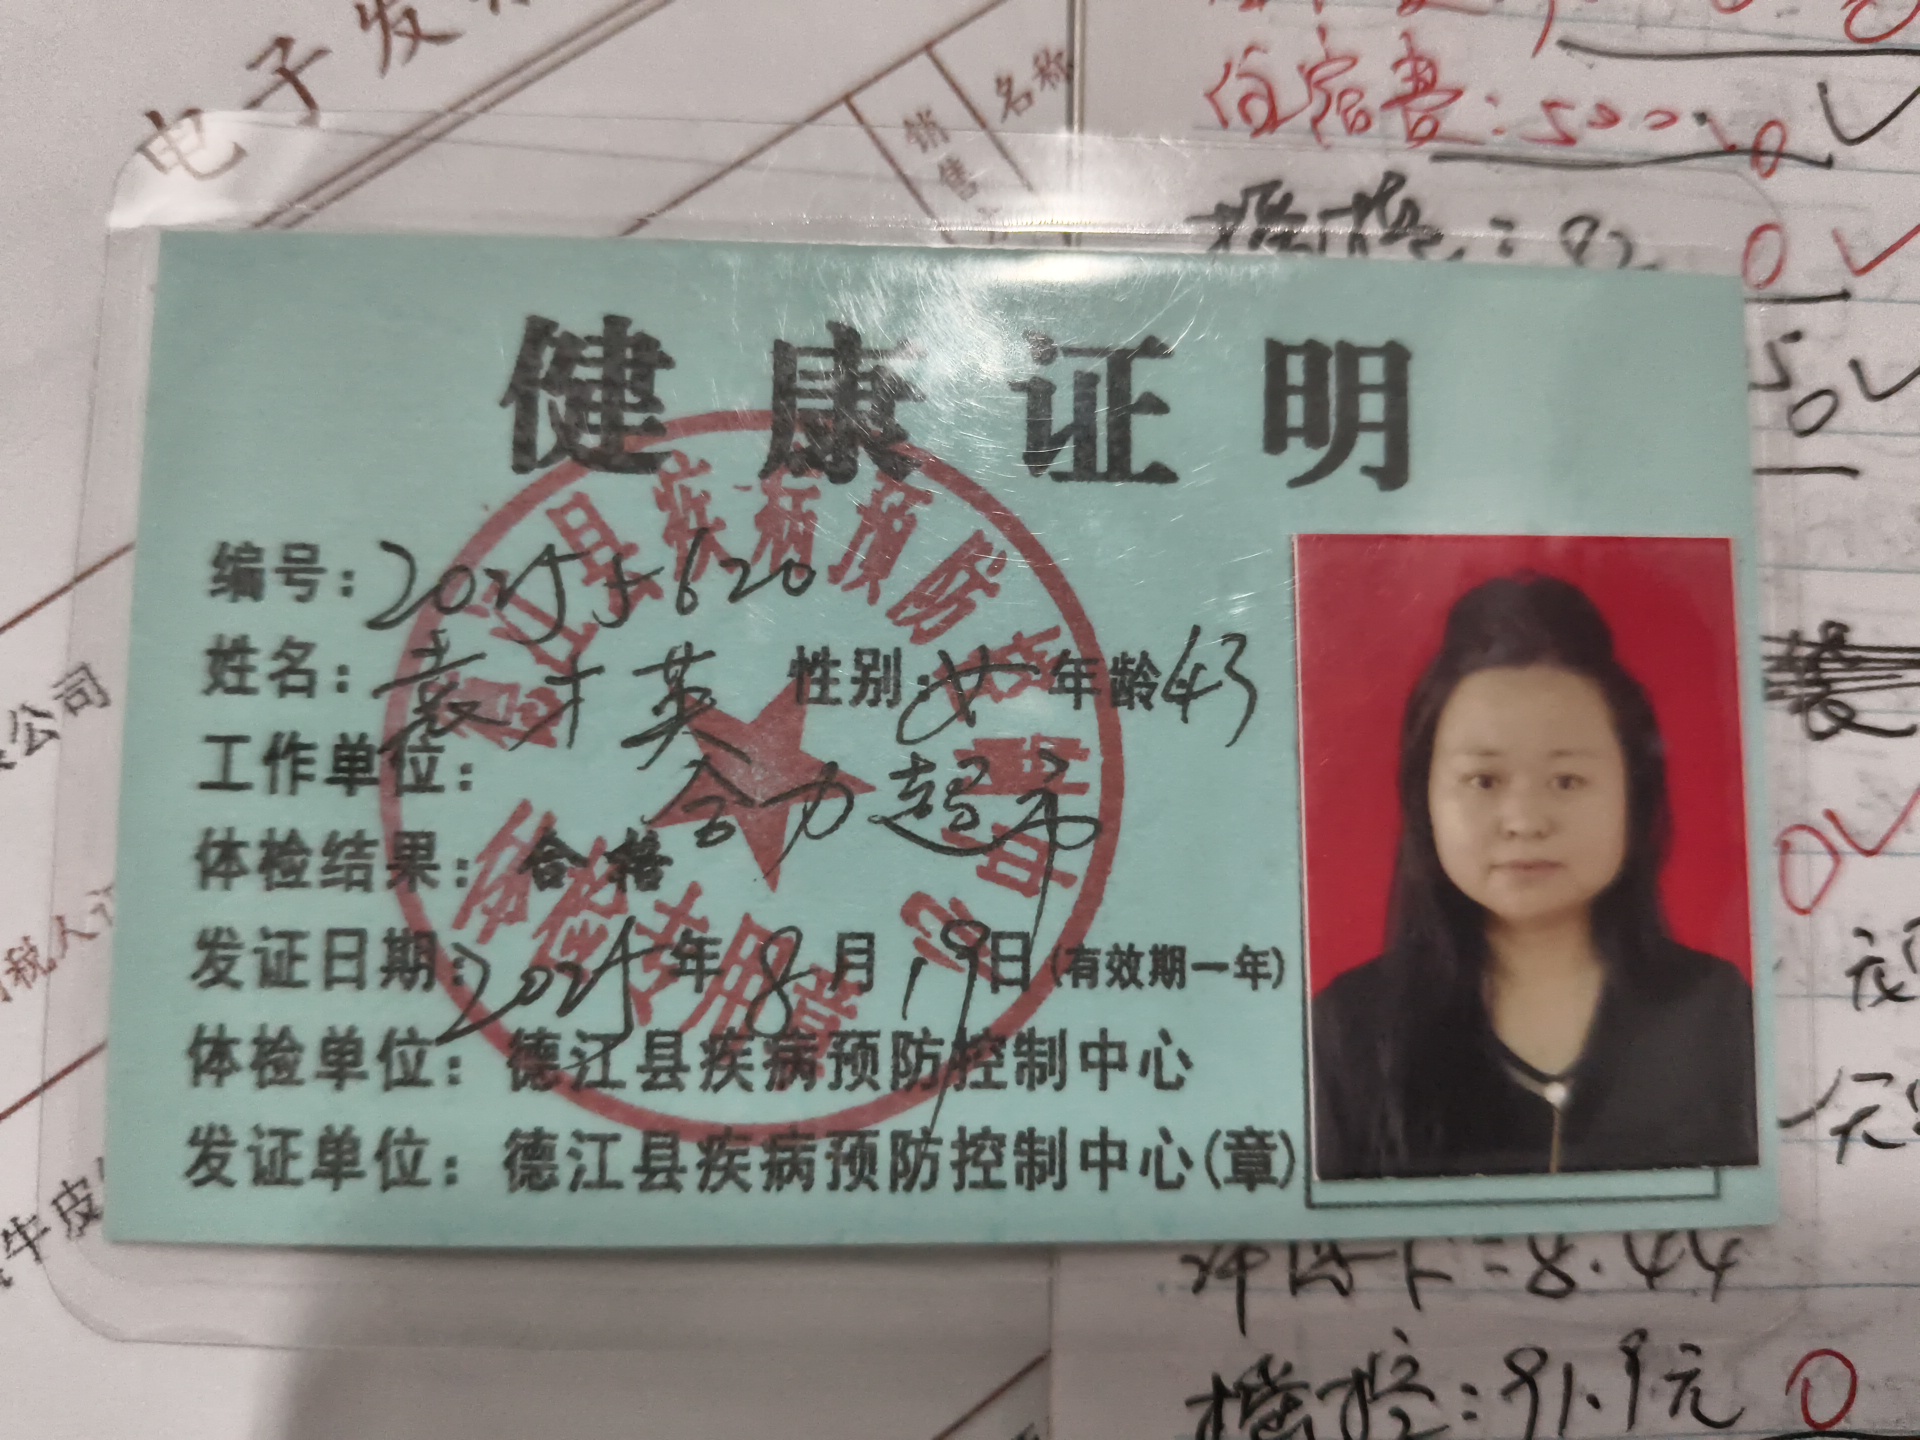 电子发
销售
名称
住宿费:5000
健康证明
编号:
姓名:袁才英 性别:女 年龄43
工作单位:合力超市
体检结果:合格
发证日期:2025年8月19日(有效期一年)
体检单位:德江县疾病预防控制中心
发证单位:德江县疾病预防控制中心(章)
德江县疾病预防控制中心
体检专用章
公司
税人
牛皮
8.44
:91.9元